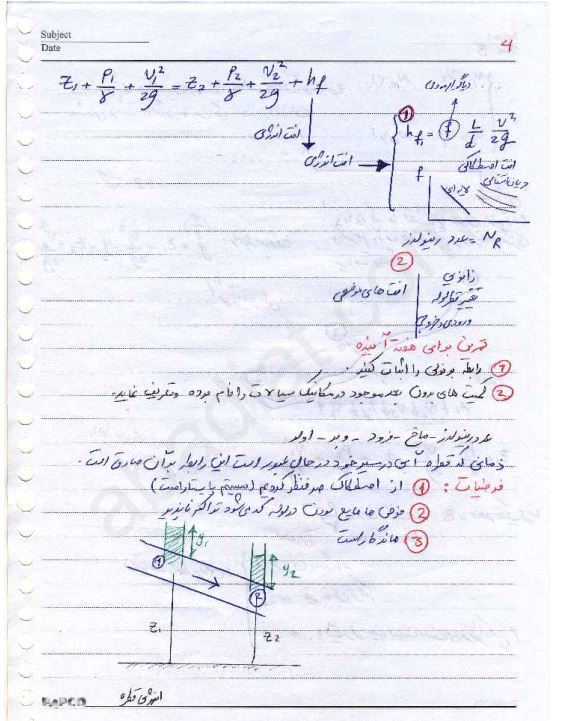 Subject
Date
4
Z₁ + P₁/γ + V₁²/2g = Z₂ + P₂/γ + V₂²/2g + hf
دیاگرام مودی
افت انرژی
افت انرژی
① hf₁ = f L/d V²/2g
افت اصطکاکی
f
لایه ای
عدد رینولدز = N_R
②
افت های موضعی
زانویی
تغییر قطر لوله
ورودی و خروجی
تمرین برای هفته آینده
① رابطه برنولی را اثبات کنید .
② کمیت های بدون بعد موجود در مکانیک سیالات را نام برده و تعریف نمایید.
عدد رینولدز - ماخ - فرود - وبر - اولر
زمانی که قطره آبی در مسیر خود در حال عبور است این رابطه بر آن صادق است .
فرضیات : ① از اصطکاک صرفنظر کردیم (سیستم پایستار است)
② فرض ما مایع بودن در لوله که می شود تراکم ناپذیر
③ ماندگار است
y₁
y₂
①
②
Z₁
Z₂
انرژی قطره
PAPCO